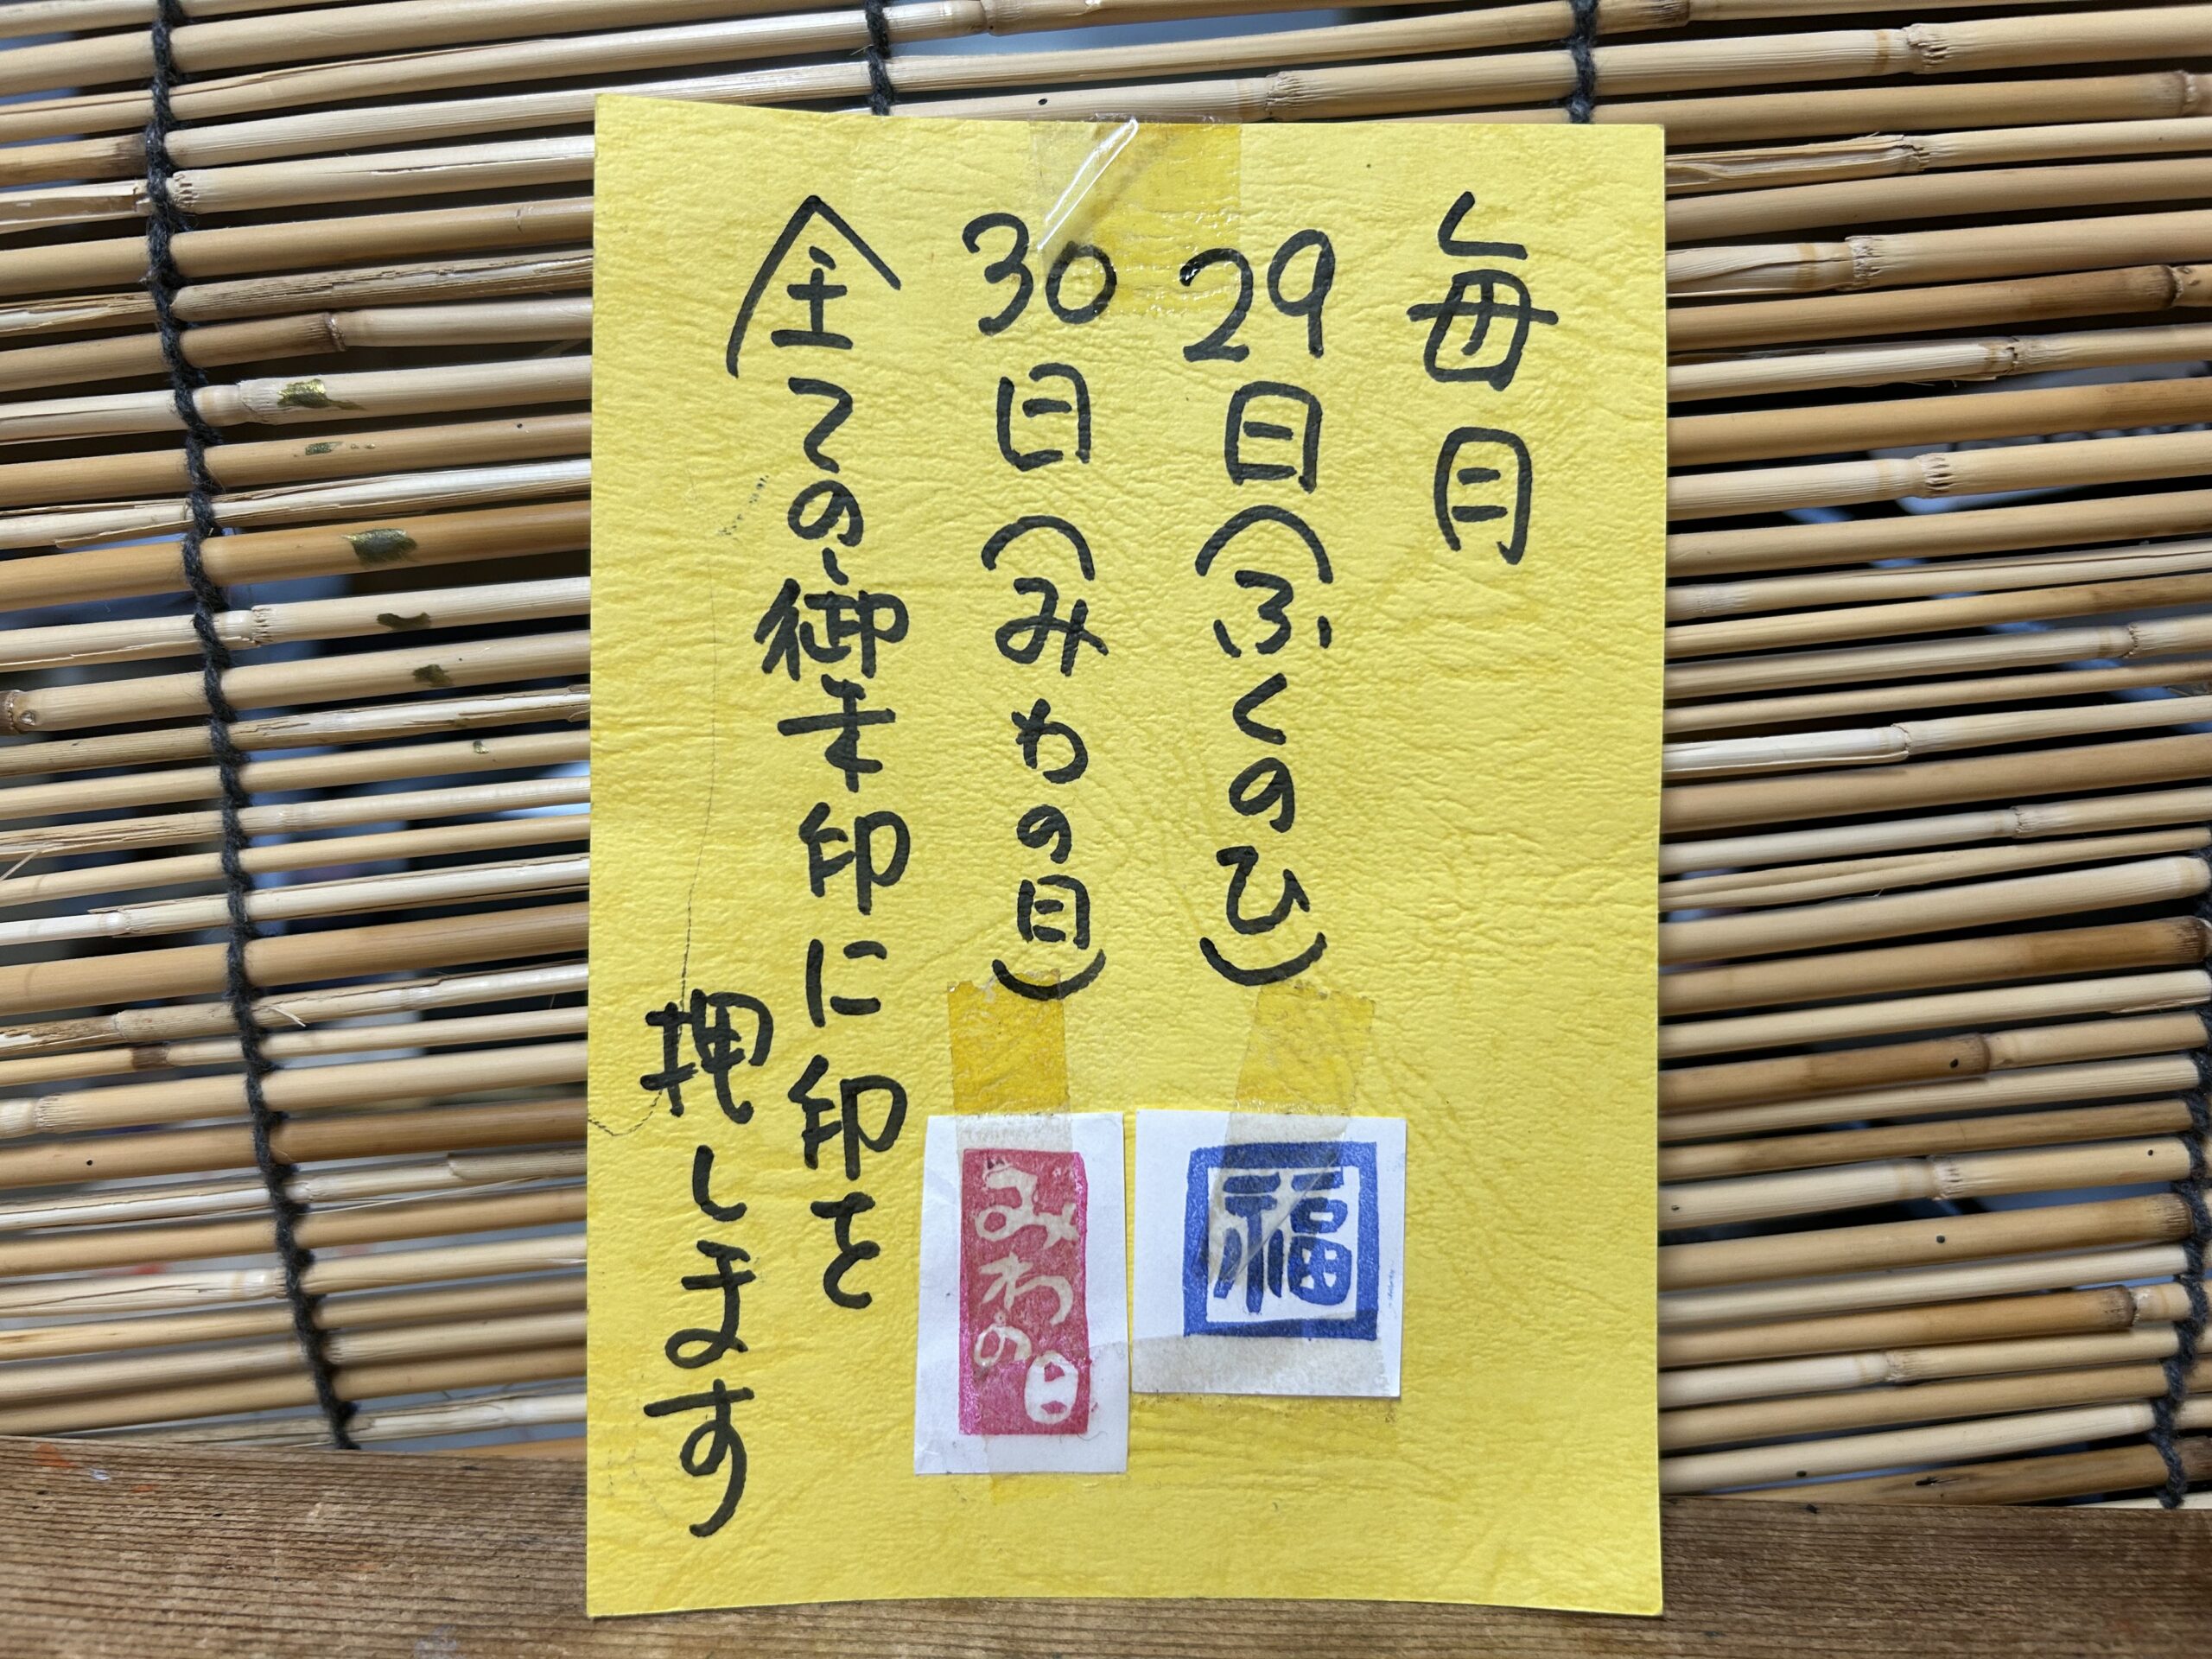 毎月
29日(ふくのひ)
30日(みわの日)
全ての御朱印に印を
押します
福
みわの日